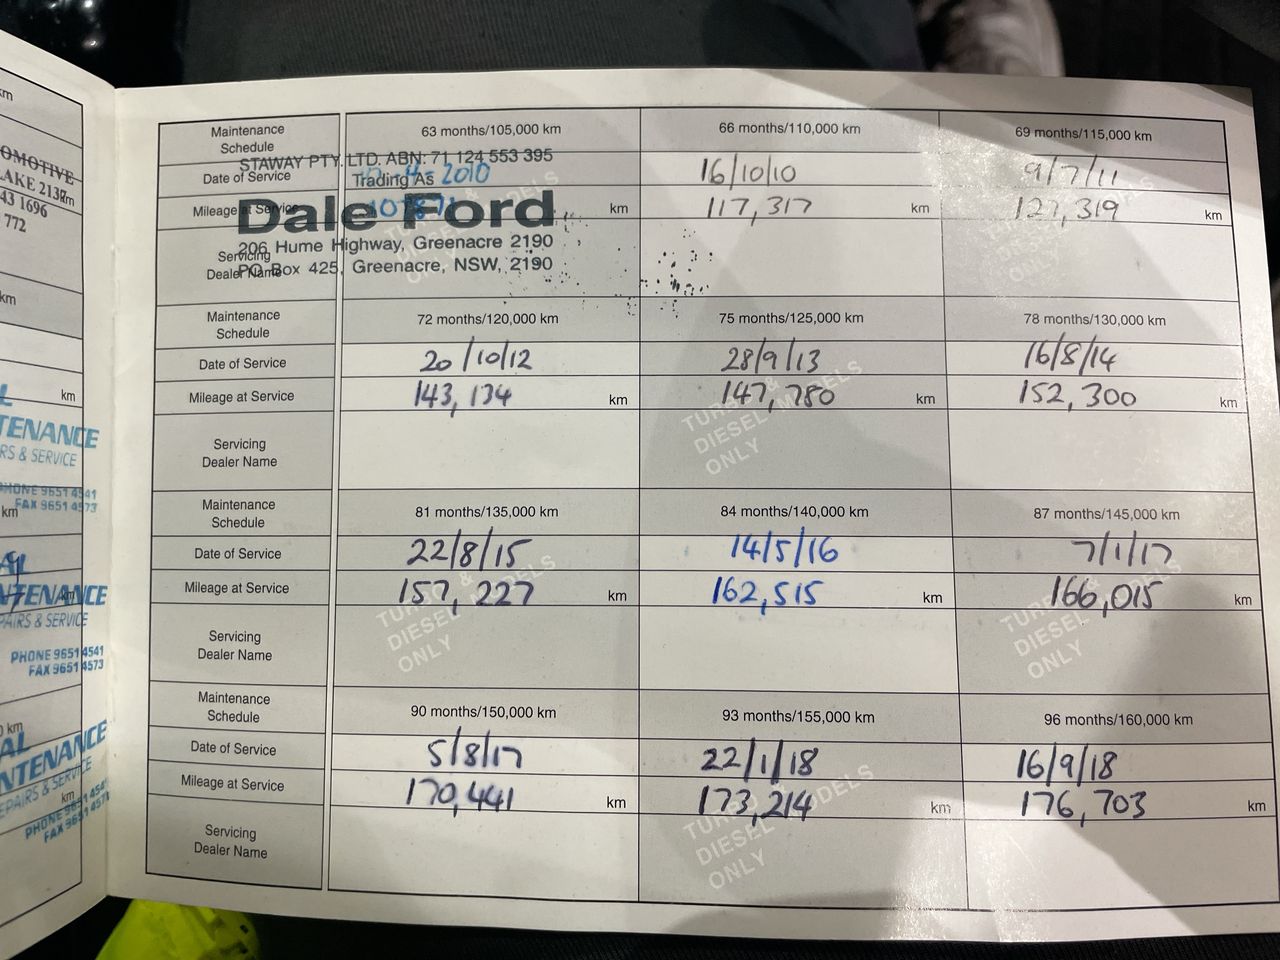 km
OMOTIVE
LAKE 2137
km
43 1696
772
km
km
TENANCE
RS & SERVICE
PHONE 9651 4541
FAX 9651 4573
km
AL
NTENANCE
km
PAIRS & SERVICE
PHONE 9651 4541
FAX 9651 4573
km
AL
NTENANCE
EPAIRS & SERVICE
km
PHONE 9651 4541
FAX 9651 4573
Maintenance Schedule 63 months/105,000 km 66 months/110,000 km 69 months/115,000 km
STAWAY PTY. LTD. ABN: 71 124 553 395
Date of Service 2010 16/10/10 9/7/11
Trading As
Mileage at Service km 117,317 km km
Dale Ford
206 Hume Highway, Greenacre 2190
Servicing
Dealer Name
PO Box 425, Greenacre, NSW, 2190
TURBO & DIESEL MODELS ONLY
Maintenance Schedule 72 months/120,000 km 75 months/125,000 km 78 months/130,000 km
Date of Service 20/10/12 28/9/13 16/8/14
Mileage at Service 143,134 km 147,780 km 152,300 km
TURBO & DIESEL MODELS ONLY
Servicing
Dealer Name
Maintenance Schedule 81 months/135,000 km 84 months/140,000 km 87 months/145,000 km
Date of Service 22/8/15 14/5/16 7/1/17
Mileage at Service 157,227 km 162,515 km 166,015 km
TURBO & DIESEL MODELS ONLY
TURBO & DIESEL MODELS ONLY
Servicing
Dealer Name
Maintenance Schedule 90 months/150,000 km 93 months/155,000 km 96 months/160,000 km
Date of Service 5/8/17 22/1/18 16/9/18
Mileage at Service 170,441 km 173,214 km 176,703 km
TURBO & DIESEL MODELS ONLY
Servicing
Dealer Name